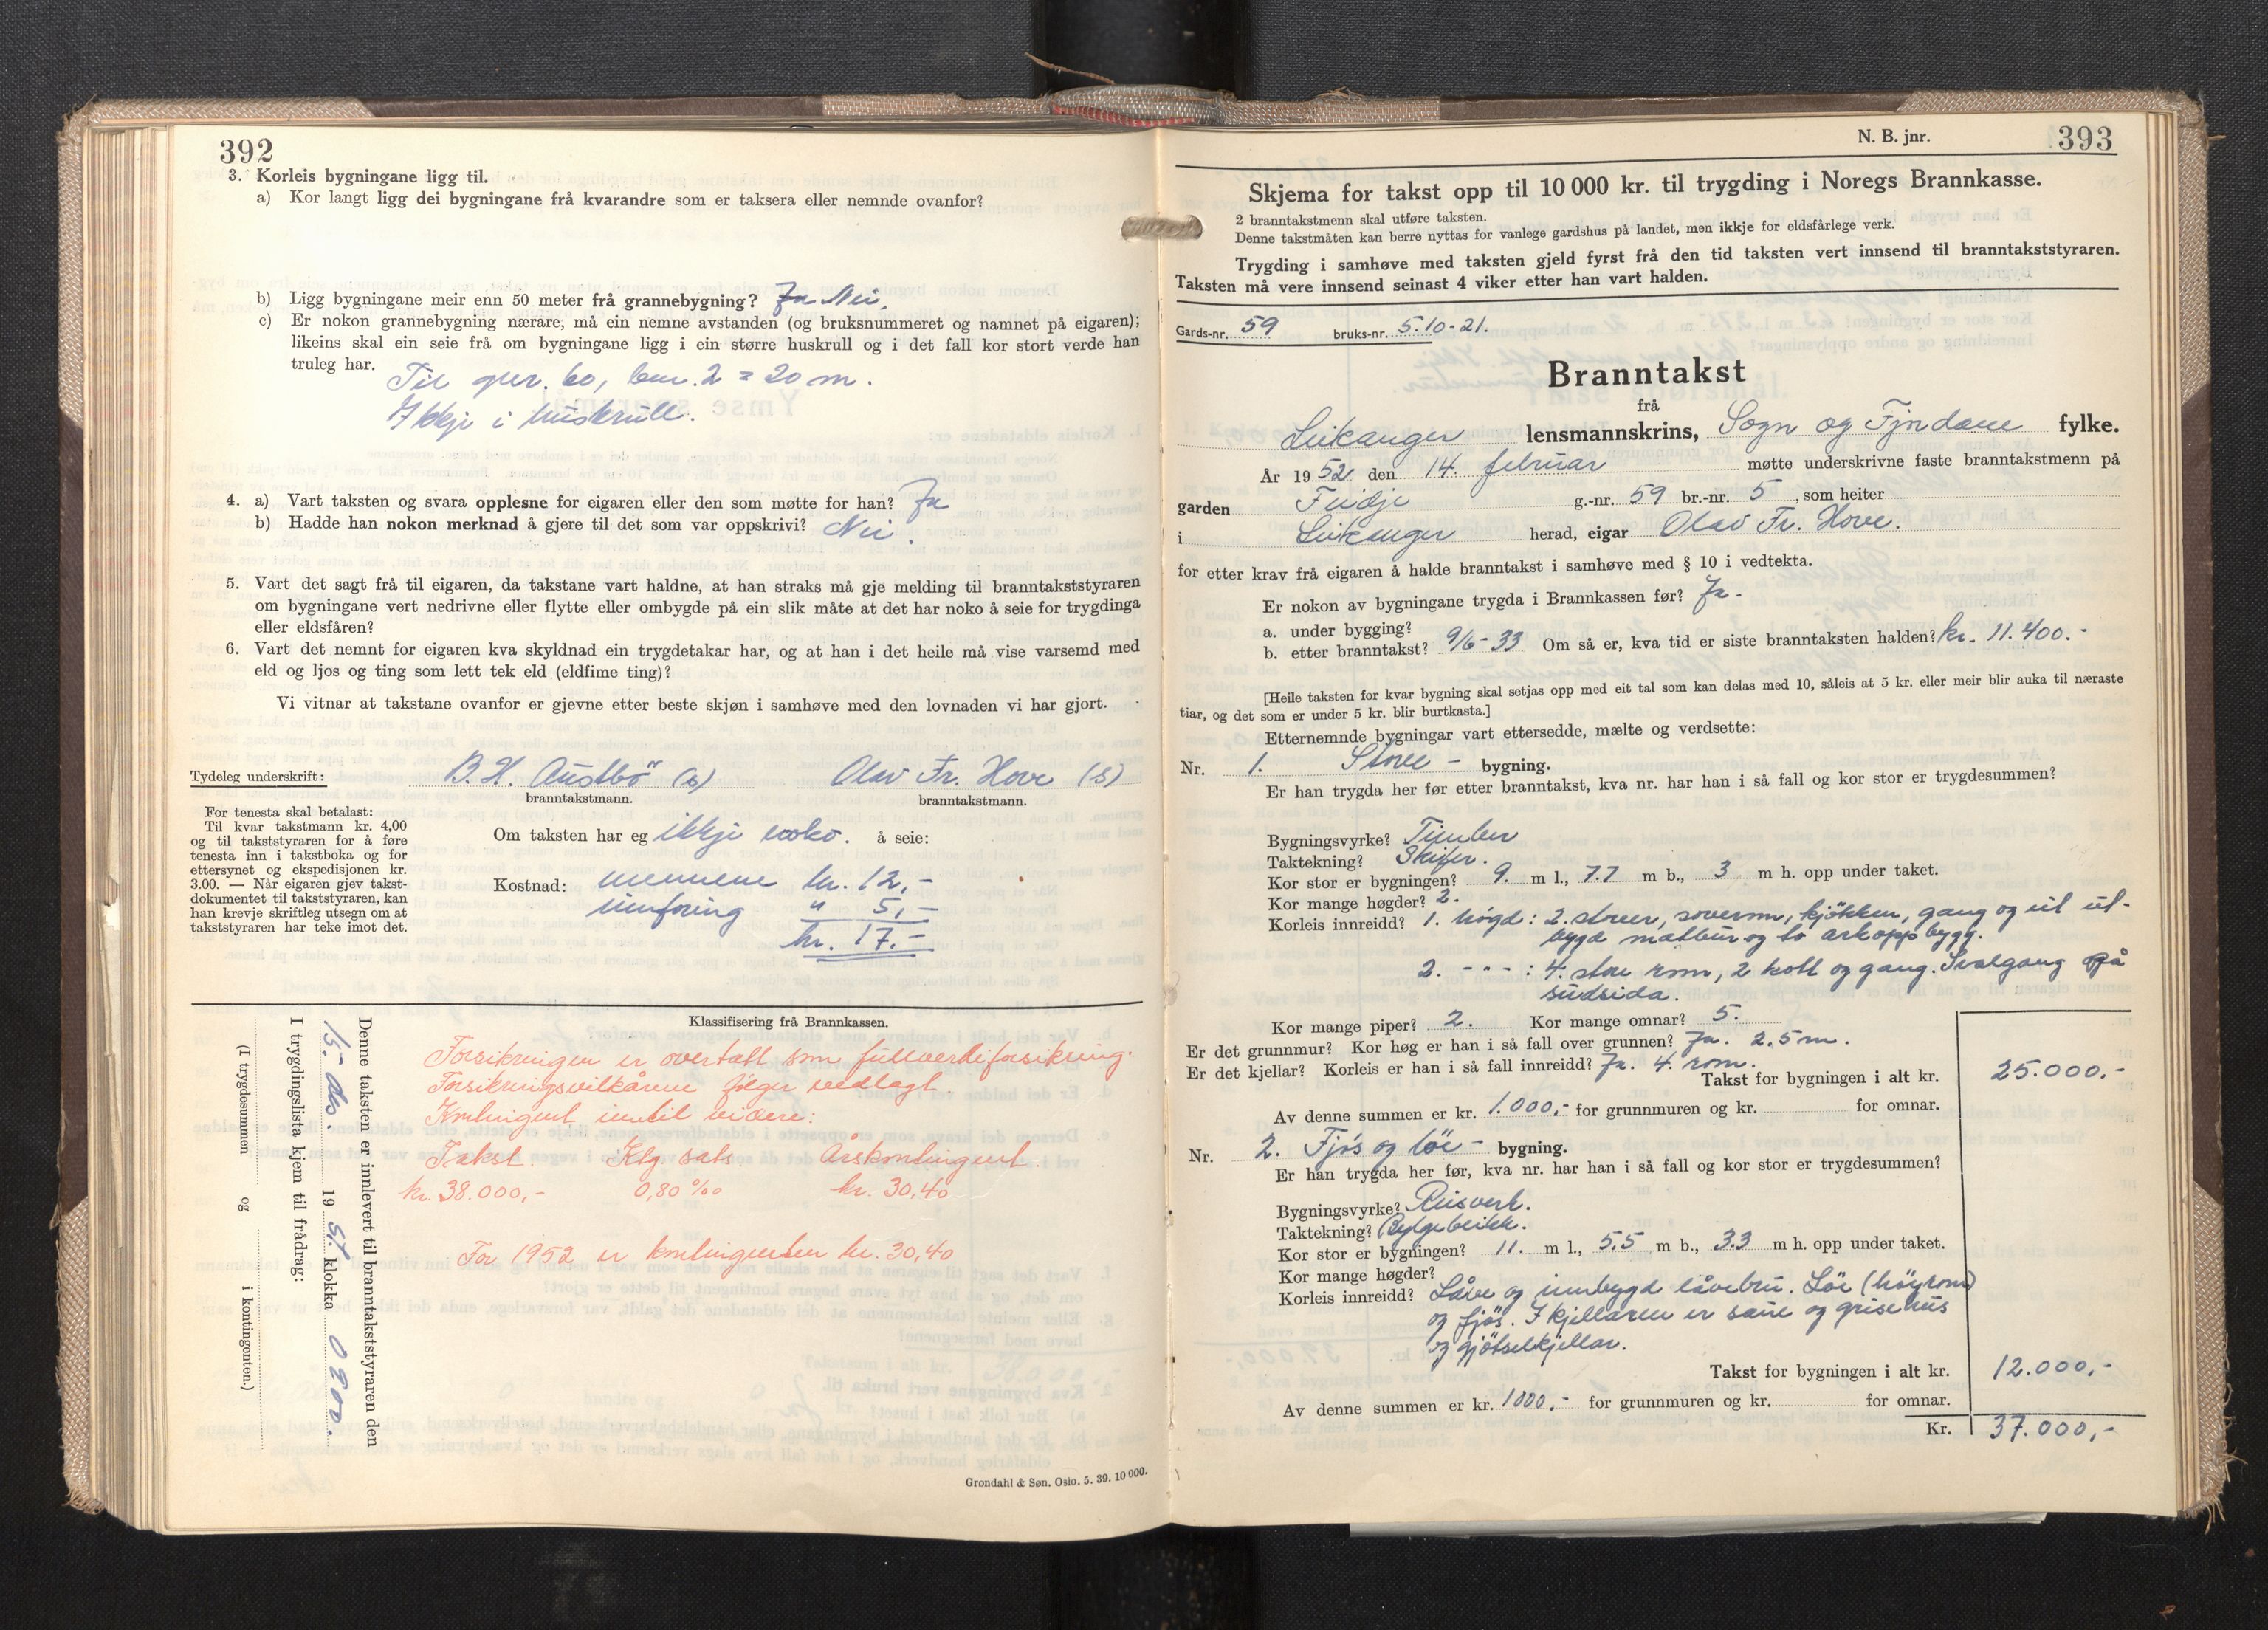 392
3. Korleis bygningane ligg til.
a) Kor langt ligg dei bygningane frå kvarandre som er taksera eller nemnde ovanfor?
b) Ligg bygningane meir enn 50 meter frå grannebygning? Ja Nei.
c) Er nokon grannebygning nærare, må ein nemne avstanden (og bruksnummeret og namnet på eigaren);
likeins skal ein seie frå om bygningane ligg i ein større huskrull og i det fall kor stort verde han
truleg har.
Til gnr. 60, bnr. 2 = 20 m.
Ikkje i huskrull.
4. a) Vart taksten og svara opplesne for eigaren eller den som møtte for han? Ja
b) Hadde han nokon merknad å gjere til det som var oppskrivi? Nei.
5. Vart det sagt frå til eigaren, da takstane vart haldne, at han straks må gje melding til branntakststyraren
om bygningane vert nedrivne eller flytte eller ombygde på ein slik måte at det har noko å seie for trygdinga
eller eldsfåren?
6. Vart det nemnt for eigaren kva skyldnad ein trygdetakar har, og at han i det heile må vise varsemd med
eld og ljos og ting som lett tek eld (eldfime ting)?
Vi vitnar at takstane ovanfor er gjevne etter beste skjøn i samhøve med den lovnaden vi har gjort.
Tydeleg underskrift: B. H. Austbö (s) Olav Fr. Hove (s)
branntakstmann. branntakstmann.
For tenesta skal betalast:
Til kvar takstmann kr. 4,00
og til takststyraren for å føre
tenesta inn i takstboka og for
ettersynet og ekspedisjonen kr.
3.00. — Når eigaren gjev takst-
dokumentet til takststyraren, kan
han krevje skriftleg utsegn om at
takststyraren har teke imot det.
Om taksten har eg ikkje noko. å seie:
Kostnad: mennene kr. 12,-
innföring " 5,-
kr. 17.-
Klassifisering frå Brannkassen.
Forsikringen er overtatt som fullverdiforsikring.
Forsikringsvilkårene følger vedlagt.
Kontingent inntil videre:
Takst. Klg. sats Årskontingent.
kr. 38.000,- 0,80 ‰ kr. 30,40
For 1952 er kontingenten kr. 30,40
Denne taksten er innlevert til branntakststyraren den
15. des. 19 51. klokka 0900.
I trygdingslista kjem til frådrag:
(I trygdesummen og i kontingenten.)
Grøndahl & Søn. Oslo. 5. 39. 10 000.
N. B. jnr. 393
Skjema for takst opp til 10 000 kr. til trygding i Noregs Brannkasse.
2 branntakstmenn skal utføre taksten.
Denne takstmåten kan berre nyttas for vanlege gardshus på landet, men ikkje for eldsfårlege verk.
Trygding i samhøve med taksten gjeld fyrst frå den tid taksten vert innsend til branntakststyraren.
Taksten må vere innsend seinast 4 viker etter han vart halden.
Gards-nr. 59 bruks-nr. 5.10-21.
Branntakst
frå
Leikanger lensmannskrins, Sogn og Fjordane fylke.
År 1952 den 14. februar møtte underskrivne faste branntakstmenn på
garden Feidje g.-nr. 59 br.-nr. 5, som heiter
i Leikanger herad, eigar Olav Fr. Hove.
for etter krav frå eigaren å halde branntakst i samhøve med § 10 i vedtekta.
Er nokon av bygningane trygda i Brannkassen før? Ja.
a. under bygging?
b. etter branntakst? 9/6-33 Om så er, kva tid er siste branntaksten halden? kr. 11.400.-
[Heile taksten for kvar bygning skal setjas opp med eit tal som kan delas med 10, såleis at 5 kr. eller meir blir auka til næraste
tiar, og det som er under 5 kr. blir burtkasta.]
Etternemnde bygningar vart ettersedde, mælte og verdsette:
Nr. 1. Stove- bygning.
Er han trygda her før etter branntakst, kva nr. har han i så fall og kor stor er trygdesummen?
Bygningsvyrke? Timber
Taktekning? Skifer.
Kor stor er bygningen? 9. m l., 7.7 m b., 3 m h. opp under taket.
Kor mange høgder? 2.
Korleis innreidd? 1. högd: 2. stover, soverom, kjökken, gang og eit ut-
bygd matbur og to arkoppbygg.
2. - - - : 4. store rom, 2 kott og gang. Svalgang på
sudsida.
Kor mange piper? 2. Kor mange omnar? 5.
Er det grunnmur? Kor høg er han i så fall over grunnen? Ja. 2.5 m.
Er det kjellar? Korleis er han i så fall innreidd? Ja. 4. rom.
Takst for bygningen i alt kr. 25.000,-
Av denne summen er kr. 1.000,- for grunnmuren og kr. for omnar.
Nr. 2. Fjös og löe- bygning.
Er han trygda her før, kva nr. har han i så fall og kor stor er trygdesummen?
Bygningsvyrke? Reisverk.
Taktekning? Bylgeblikk.
Kor stor er bygningen? 11. m l., 5.5 m b., 3.3 m h. opp under taket.
Kor mange høgder?
Korleis innreidd? Låve og innbygd låvebru. Löe (höyrom)
og fjös. I kjellaren er saue og grisehus
og gjötselkjellar.
Takst for bygningen i alt kr. 12.000,-
Av denne summen er kr. 1000,- for grunnmuren og kr. for omnar.
Kr. 37.000,-